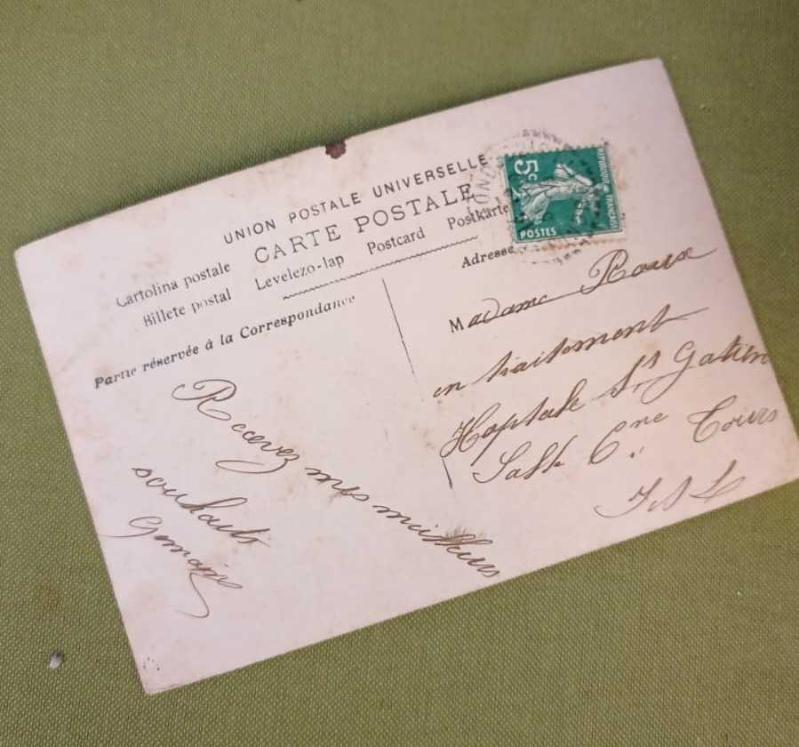 UNION POSTALE UNIVERSELLE
CARTE POSTALE
Cartolina postale Levelezo-lap Postcard Postkarte
Billete postal
Partie réservée à la Correspondance
Adresse
5c
POSTES
Madame Roux
en traitement
Hopitale St Gatien
Salle 6ne Tours
I & L
Recevez mes meilleurs
souhaits